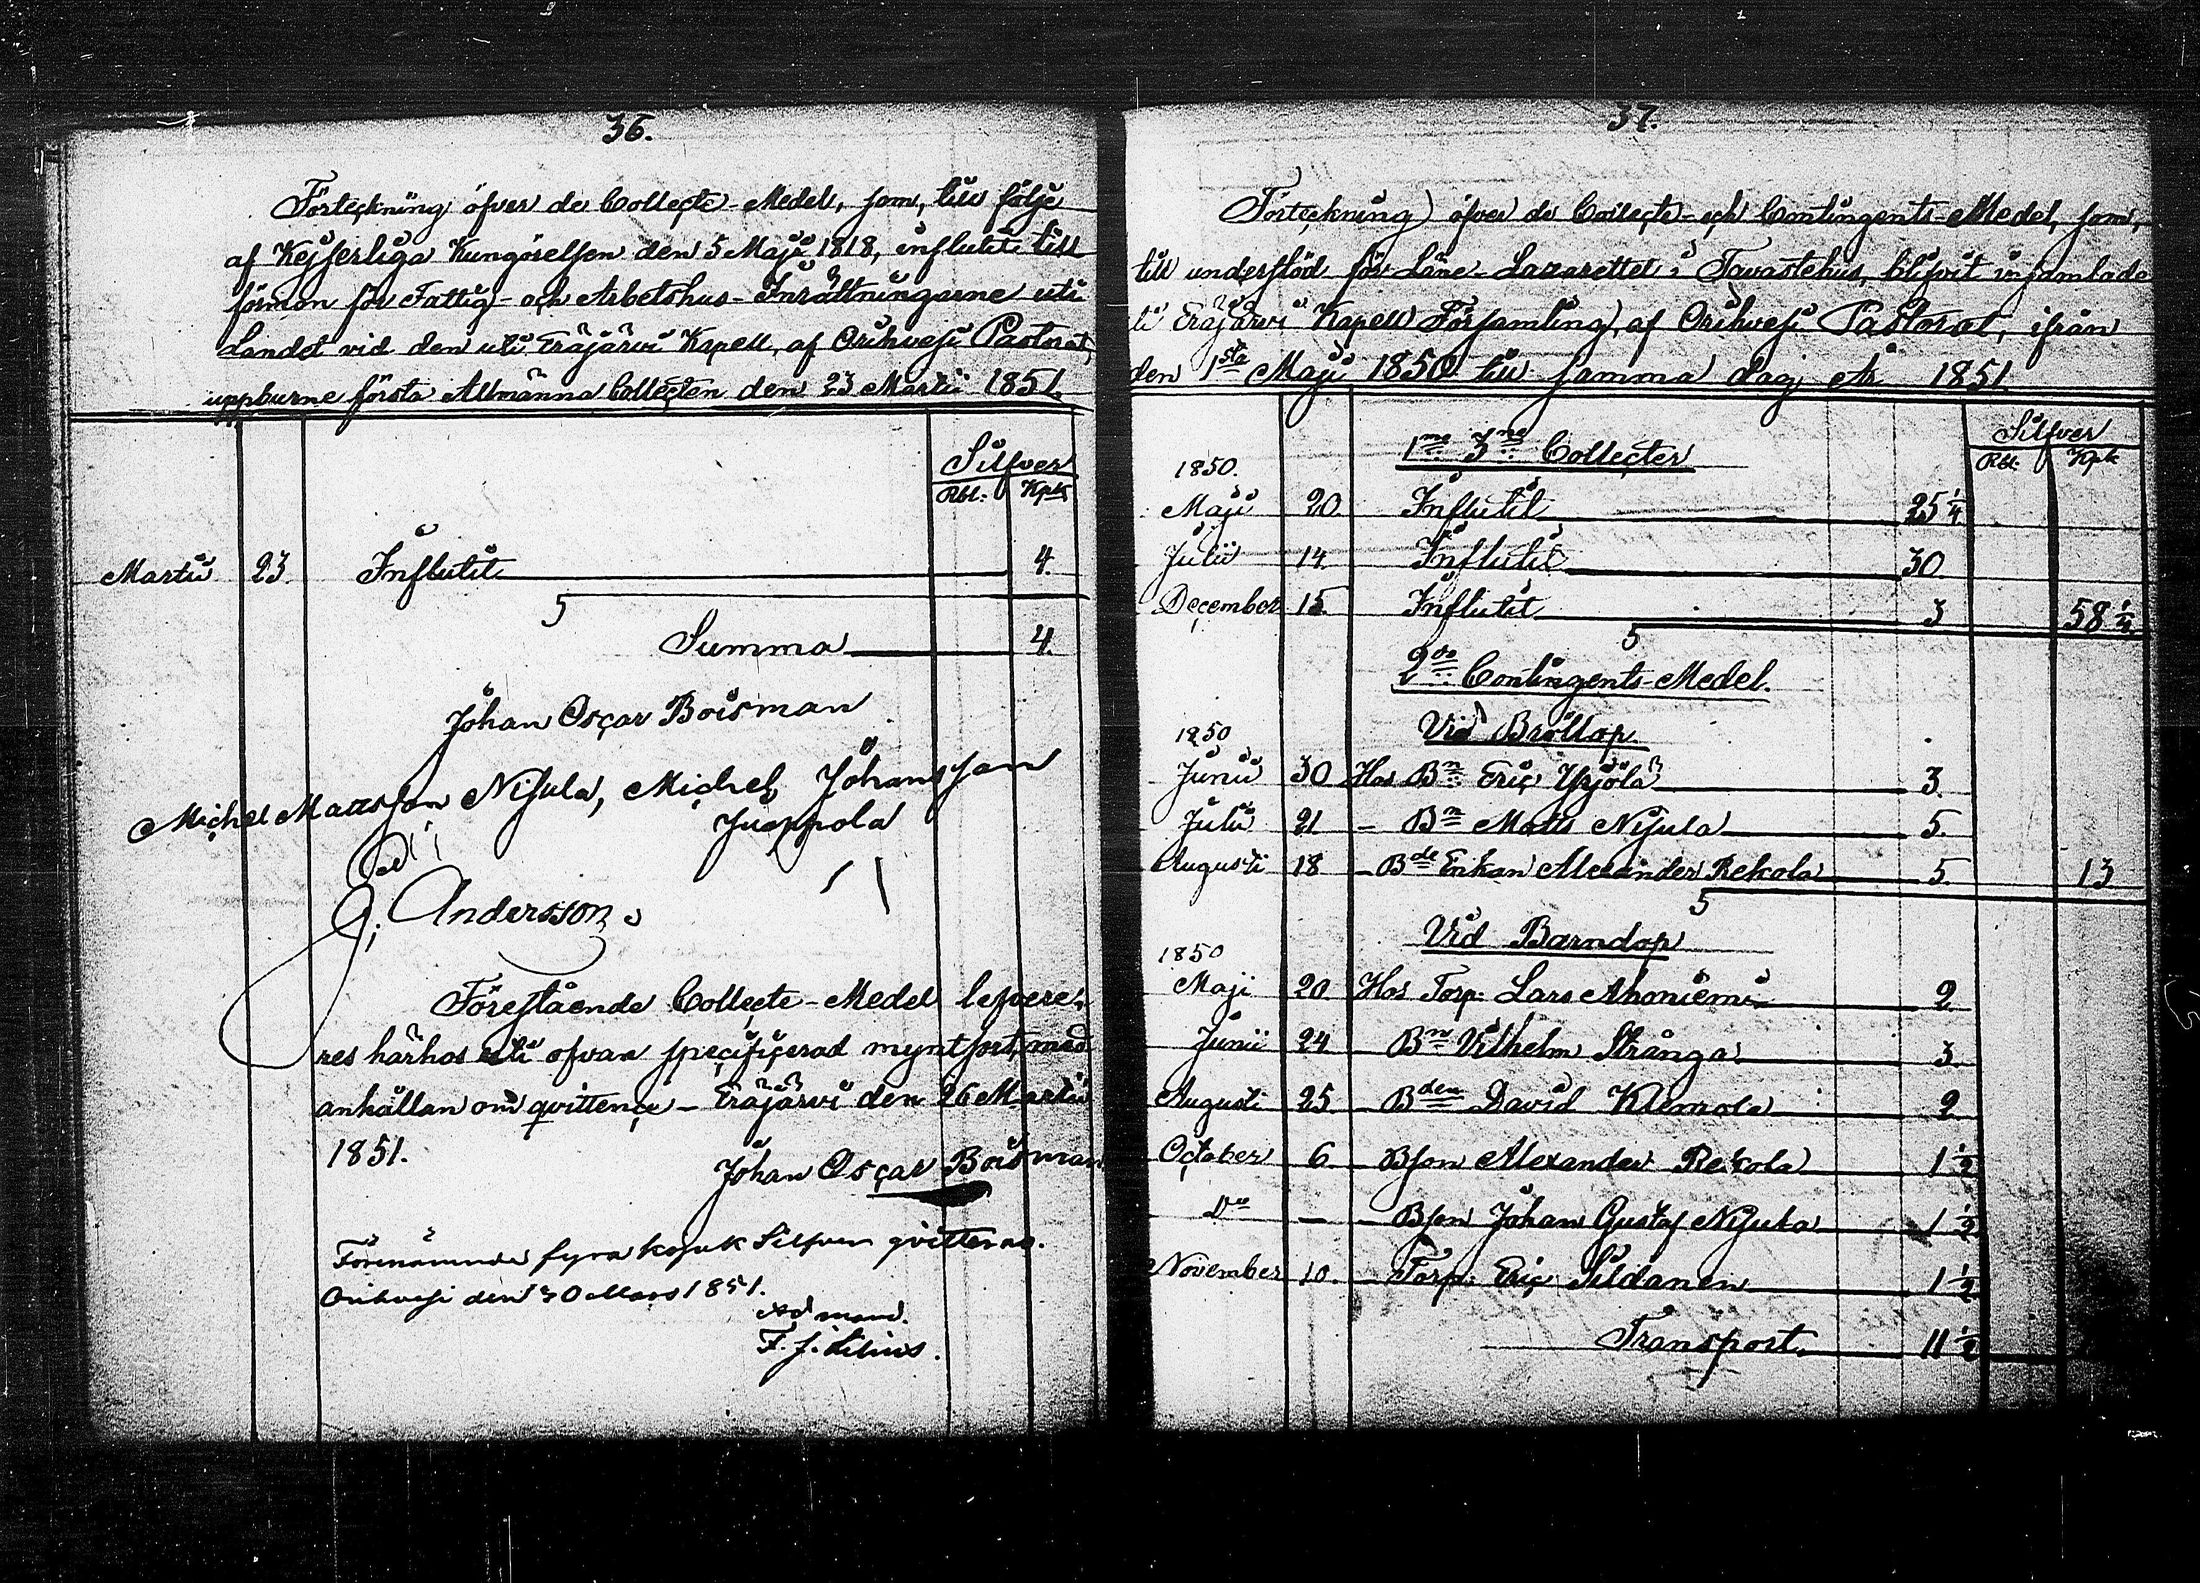 36.
Förteckning öfver de Collecte-Medel, som, till följe
af Kejserliga Kungörelsen den 5 Maji 1818, influtit till
förmon för Fattig- och Arbetshus-Inrättningarne uti
Landet vid den uti Eräjärvi Kapell, af Orihvesi Pastorat,
uppburne första Allmänna Collecten den 23 Martii 1851.
Silfver
Rbl. Kpk
Martii 23. Influtit 4.
Summa 4.
Johan Oscar Boisman
Michel Mattsson Nisula, Michel Johansson
Juoppola
G. Andersson
Förestående Collecte-Medel lefvere-
res härhos uti ofvan specificerad myntsort, med
anhållan om qvittence - Eräjärvi den 26 Martii
1851.
Johan Oscar Boisman
Förenämnde fyra kopek Silfver qvitteras.
Orihvesi den 30 Mars 1851.
Ad mand.
F. J.
37.
Förteckning öfver de Collecte- och Contingents-Medel, som,
till understöd för Läne-Lazarettet i Tavastehus, blifvit insamlade
i Eräjärvi Kapell Församling, af Orihvesi Pastorat, ifrån
den 1sta Maji 1850 till samma dag År 1851.
Silfver
Rbl. Kpk
1mo 3ne Collecter
1850.
Maji 20. Influtit 25 1/4
Julii 14. Influtit 30
December 15. Influtit 3 58 1/4
2do Contingents-Medel.
Vid Bröllop
1850
Junii 30 Hos Bn Eric Yrjölä 3.
Julii 21 - Bn Matts Nisula 5.
Augusti 18 - Bde Enkan Alexander Rekola 5. 13
Vid Barndop
1850
Maji 20 Hos Torp. Lars Ahoniemi 2.
Junii 24 - Bn Vilhelm Strånga 3.
Augusti 25. - Bden David Klemola 2
October 6 - Bson Alexander Rekola 1 1/2
Do - - Bson Johan Gustaf Nisula 1 1/2
November 10. - Torp. Eric Sildanen 1 1/2
Transport 11 1/2